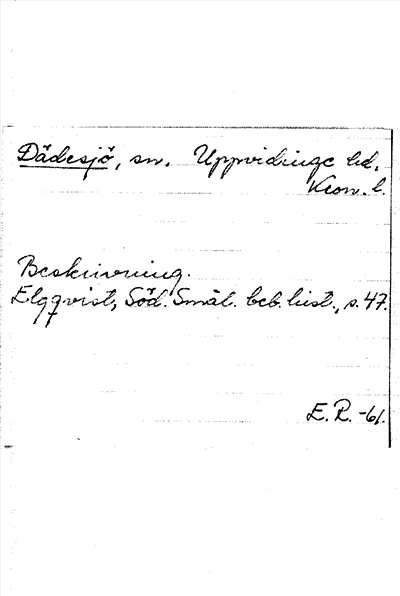 Dädesjö, sn. Uppvidinge hd.
Kron. l.
Beskrivning.
Elgqvist, Söd. Smål. beb. hist., s. 47.
E. R. -61.